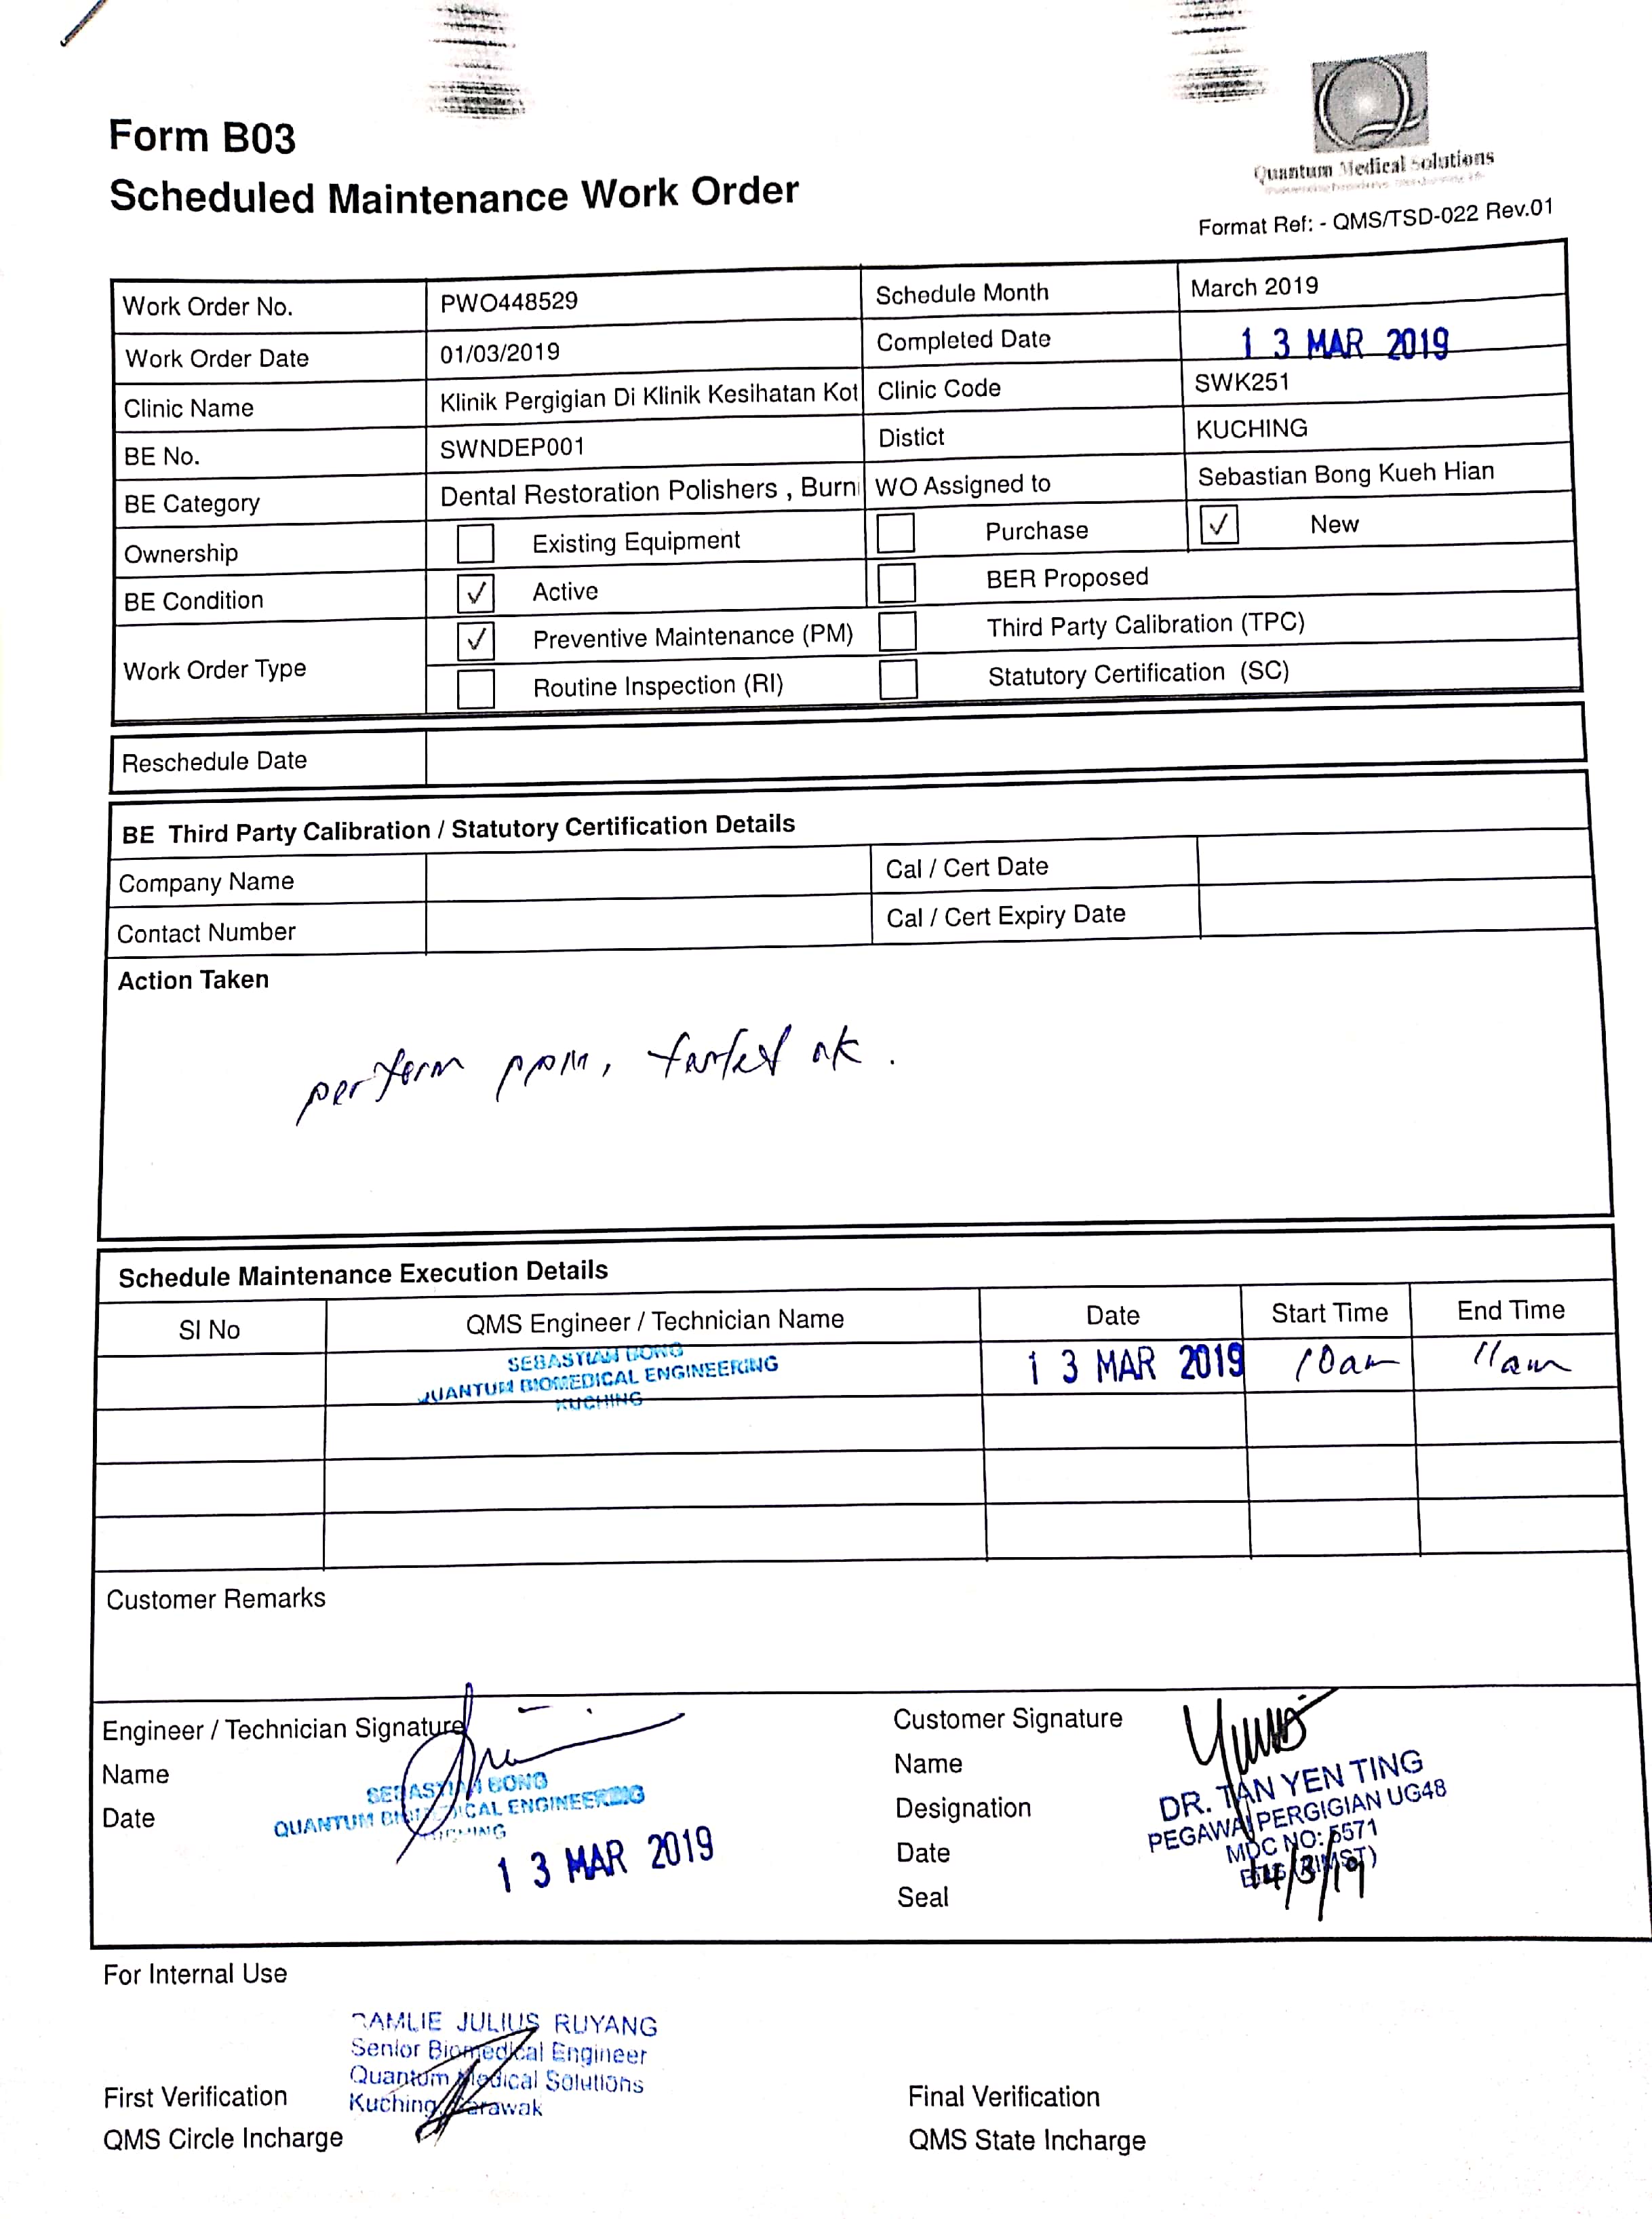 Quantum Medical Solutions
Form B03
Scheduled Maintenance Work Order
Format Ref: - QMS/TSD-022 Rev.01
Work Order No. PWO448529 Schedule Month March 2019
Work Order Date 01/03/2019 Completed Date 13 MAR 2019
Clinic Name Klinik Pergigian Di Klinik Kesihatan Kot Clinic Code SWK251
BE No. SWNDEP001 Distict KUCHING
BE Category Dental Restoration Polishers , Burni WO Assigned to Sebastian Bong Kueh Hian
Ownership Existing Equipment Purchase ✓ New
BE Condition ✓ Active BER Proposed
Work Order Type ✓ Preventive Maintenance (PM) Third Party Calibration (TPC)
Routine Inspection (RI) Statutory Certification (SC)
Reschedule Date
BE Third Party Calibration / Statutory Certification Details
Company Name Cal / Cert Date
Contact Number Cal / Cert Expiry Date
Action Taken
perform ppm, tested ok.
Schedule Maintenance Execution Details
SI No QMS Engineer / Technician Name Date Start Time End Time
SEBASTIAN BONG
QUANTUM BIOMEDICAL ENGINEERING 13 MAR 2019 10am 11am
KUCHING
Customer Remarks
Engineer / Technician Signature
Name
Date
SEBASTIAN BONG
QUANTUM BIOMEDICAL ENGINEERING
KUCHING
13 MAR 2019
Customer Signature
Name
Designation
Date
Seal
DR. TAN YEN TING
PEGAWAI PERGIGIAN UG48
MDC NO: 5571
14/3/19
For Internal Use
RAMLIE JULIUS RUYANG
Senior Biomedical Engineer
Quantum Medical Solutions
Kuching, Sarawak
First Verification
QMS Circle Incharge
Final Verification
QMS State Incharge